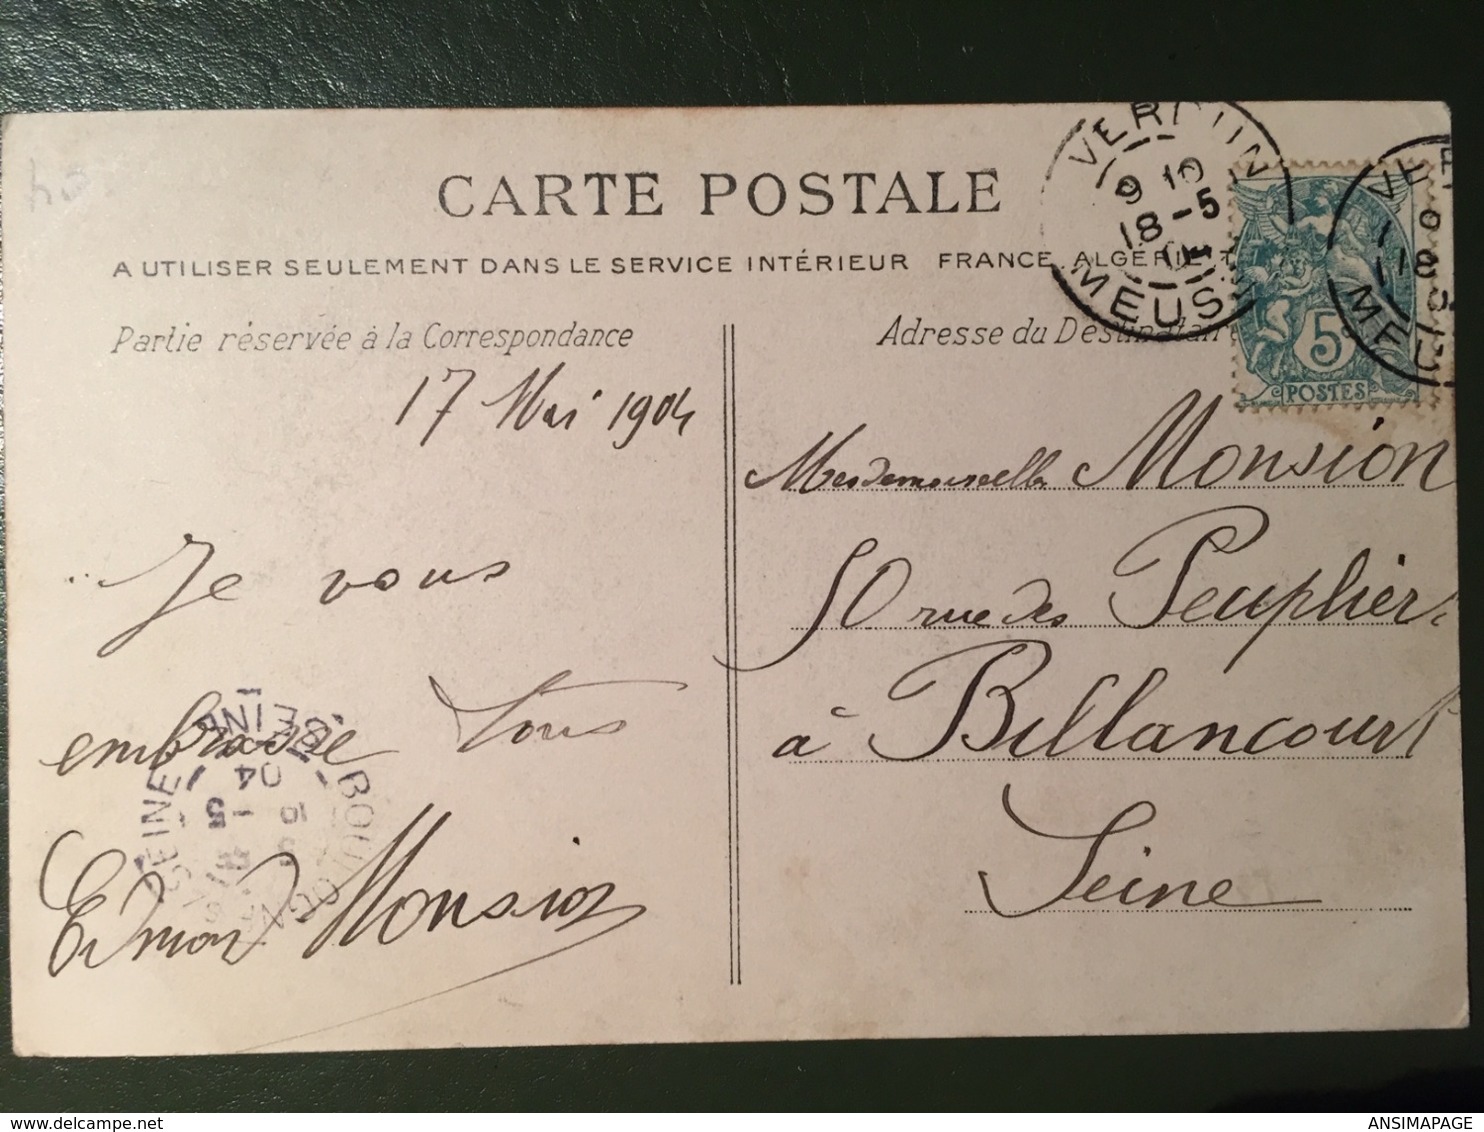 CARTE POSTALE
A UTILISER SEULEMENT DANS LE SERVICE INTÉRIEUR FRANCE, ALGÉRIE
Partie réservée à la Correspondance
17 Mai 1904
Je vous
embrasse tous
Edmond Monsion
Adresse du Destinataire
Mesdemoiselles Monsion
50 rue des Peupliers
à Billancourt
Seine
VERDUN
9 10
18 -5
MEUSE
5
POSTES
VE
18
MEU
BOULOGNE
SEINE
-5
04
ansimapage.delcampe.net
ANSIMAPAGE